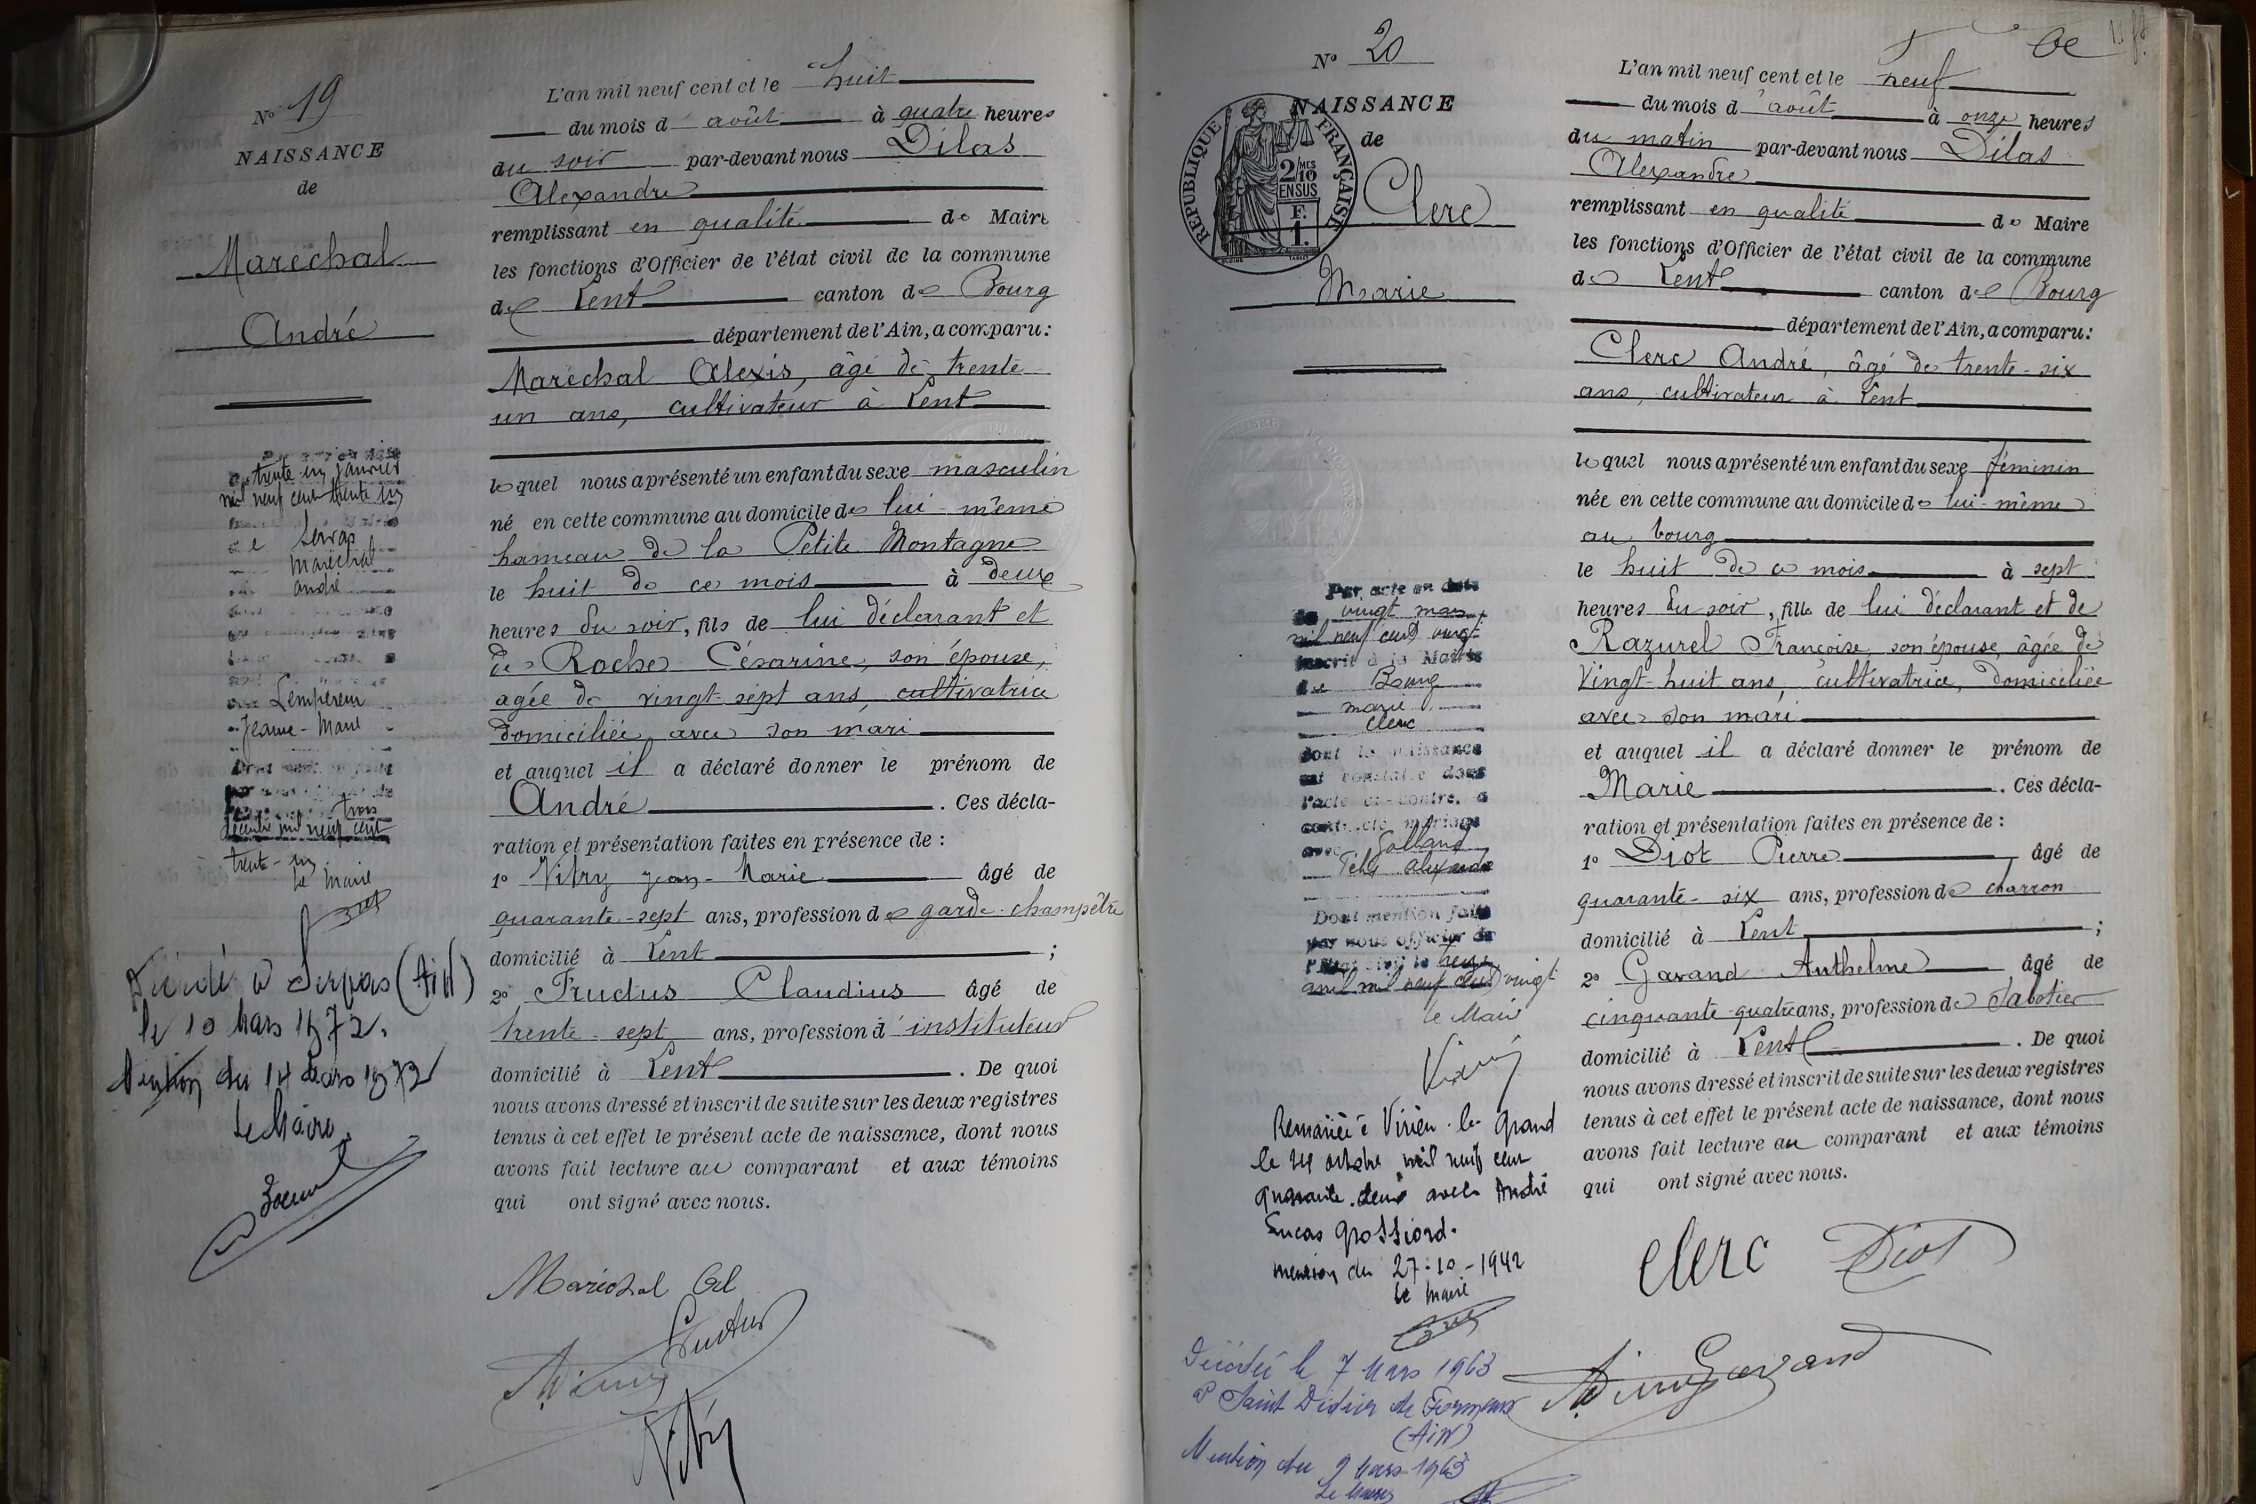 Nº 19
NAISSANCE
de
Maréchal
André
trente un janvier
mil neuf cent trente un
Maréchal
andré
Lempereur
Jeanne-Marie
par nous officier de
trois
décembre mil neuf cent
trente-un
Le Maire
Décédé à Servas (AIN)
le 10 Mars 1972.
Mention du 14 Mars 1972
Le Maire
L'an mil neuf cent et le huit
du mois d'août à quatre heures
du soir par-devant nous Dilas
Alexandre
remplissant en qualité de Maire
les fonctions d'Officier de l'état civil de la commune
de Lent canton de Bourg
département de l'Ain, a comparu:
Maréchal Alexis, âgé de trente
un ans, cultivateur à Lent
lequel nous a présenté un enfant du sexe masculin
né en cette commune au domicile de lui-même
hameau de la Petite Montagne
le huit de ce mois à deux
heures du soir, fils de lui déclarant et
de Roche Césarine, son épouse,
agée de vingt-sept ans, cultivatrice
domiciliée avec son mari
et auquel il a déclaré donner le prénom de
André. Ces décla-
ration et présentation faites en présence de:
1º Vitry Jean-Marie âgé de
quarante-sept ans, profession de garde-champêtre
domicilié à Lent;
2º Fructus Claudius âgé de
trente-sept ans, profession d'instituteur
domicilié à Lent. De quoi
nous avons dressé et inscrit de suite sur les deux registres
tenus à cet effet le présent acte de naissance, dont nous
avons fait lecture au comparant et aux témoins
qui ont signé avec nous.
Maréchal Al
Fructus
Vitry
Nº 20
NAISSANCE
de
RÉPUBLIQUE FRANÇAISE
2/10 MES
EN SUS
F.
1.
Clerc
Marie
Par acte en date
du vingt mars
mil neuf cent vingt
inscrit à la Mairie
de Bourg
marie
Clerc
dont la naissance
est constatée dans
l'acte ci-contre, a
contracté mariage
avec Golland
Félix alexandre
Dont mention faite
par nous officier de
l'État civil le
avril mil neuf cent vingt
Le Maire
Remariée à Virieu-le-Grand
le 24 octobre mil neuf cent
quarante-deux avec André
Lucas Grossiord.
mention du 27-10-1942
Le Maire
Décédée le 7 Mars 1963
à Saint Didier de Formans
(AIN)
Mention du 9 Mars 1963
Le Maire
L'an mil neuf cent et le neuf
du mois d'août à onze heures
du matin par-devant nous Dilas
Alexandre
remplissant en qualité de Maire
les fonctions d'Officier de l'état civil de la commune
de Lent canton de Bourg
département de l'Ain, a comparu:
Clerc André, âgé de trente-six
ans, cultivateur à Lent
lequel nous a présenté un enfant du sexe féminin
née en cette commune au domicile de lui-même
au bourg
le huit de ce mois à sept
heures du soir, fille de lui déclarant et de
Razurel Françoise, son épouse, âgée de
vingt-huit ans, cultivatrice, domiciliée
avec son mari
et auquel il a déclaré donner le prénom de
Marie. Ces décla-
ration et présentation faites en présence de:
1º Diot Pierre âgé de
quarante-six ans, profession de charron
domicilié à Lent;
2º Gavand Anthelme âgé de
cinquante-quatre ans, profession de sabotier
domicilié à Lent. De quoi
nous avons dressé et inscrit de suite sur les deux registres
tenus à cet effet le présent acte de naissance, dont nous
avons fait lecture au comparant et aux témoins
qui ont signé avec nous.
Clerc Diot
Gavand